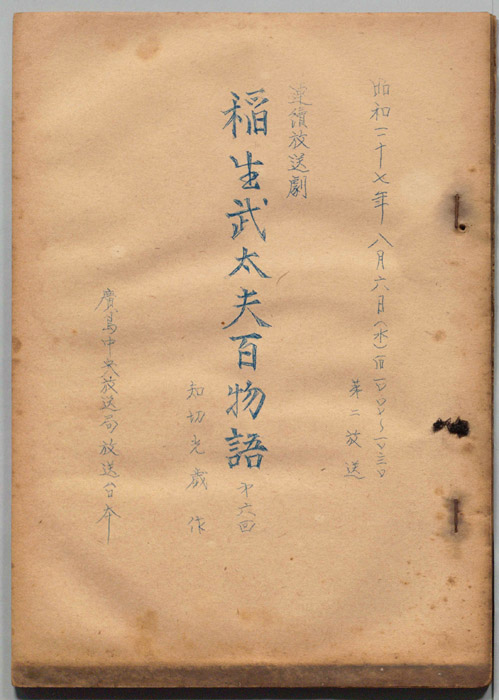 昭和二十七年八月六日(水)
第二放送
連續放送劇
稲生武太夫百物語 才六回
知切光歳 作
廣島中央放送局放送台本